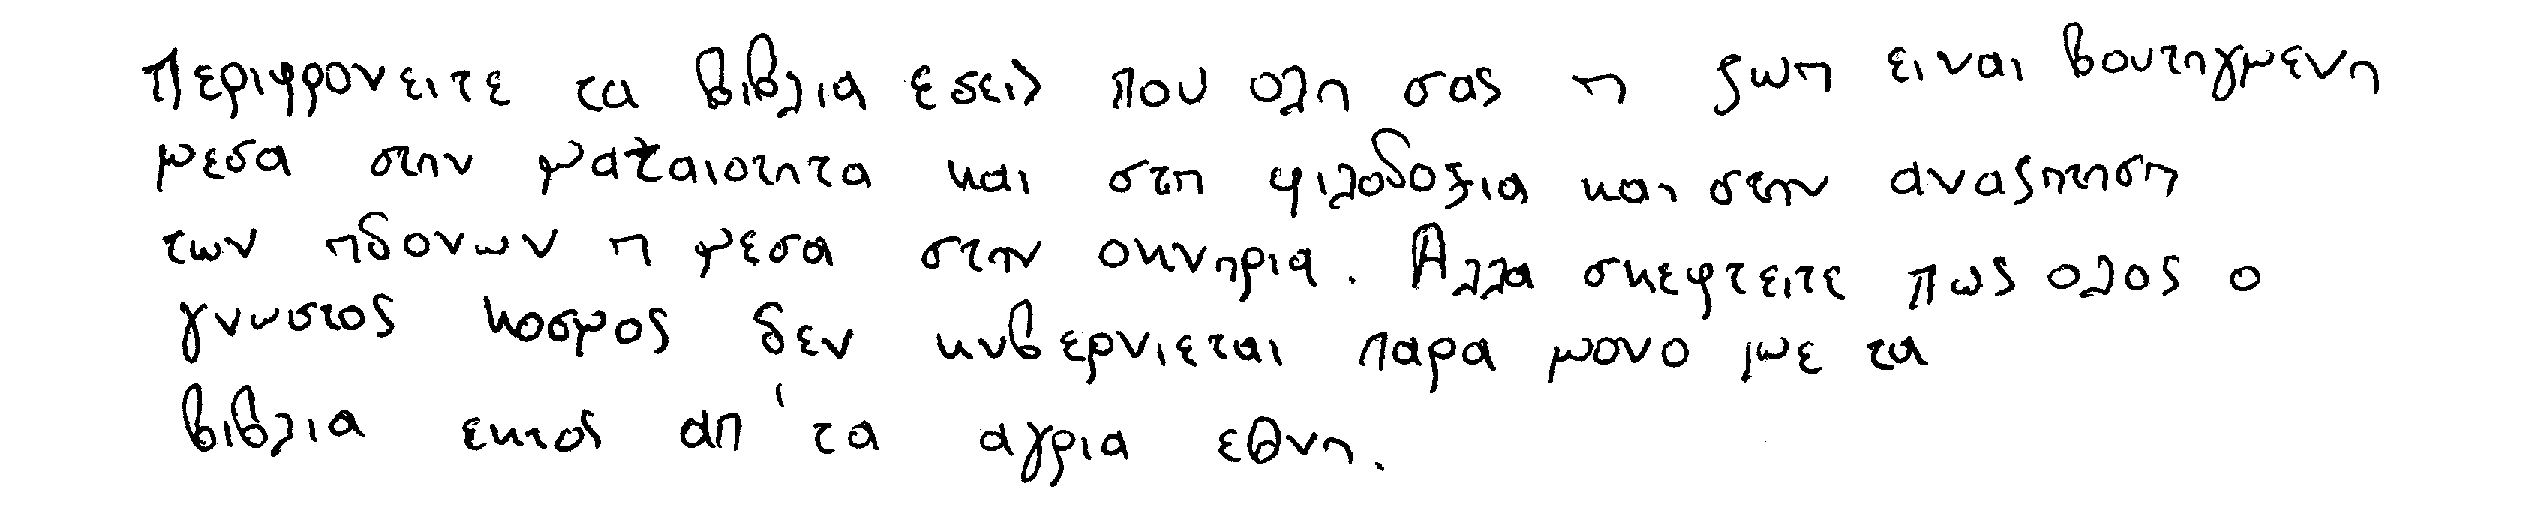 Περιφρονειτε τα βιβλια εσεις που ολη σας η ζωη ειναι βουτηγμενη
μεσα στην ματαιοτητα και στη φιλοδοξια και στην αναζητηση
των ηδονων η μεσα στην οκνηρια. Αλλα σκεφτειτε πως ολος ο
γνωστος κοσμος δεν κυβερνιεται παρα μονο με τα
βιβλια εκτος απ' τα αγρια εθνη.